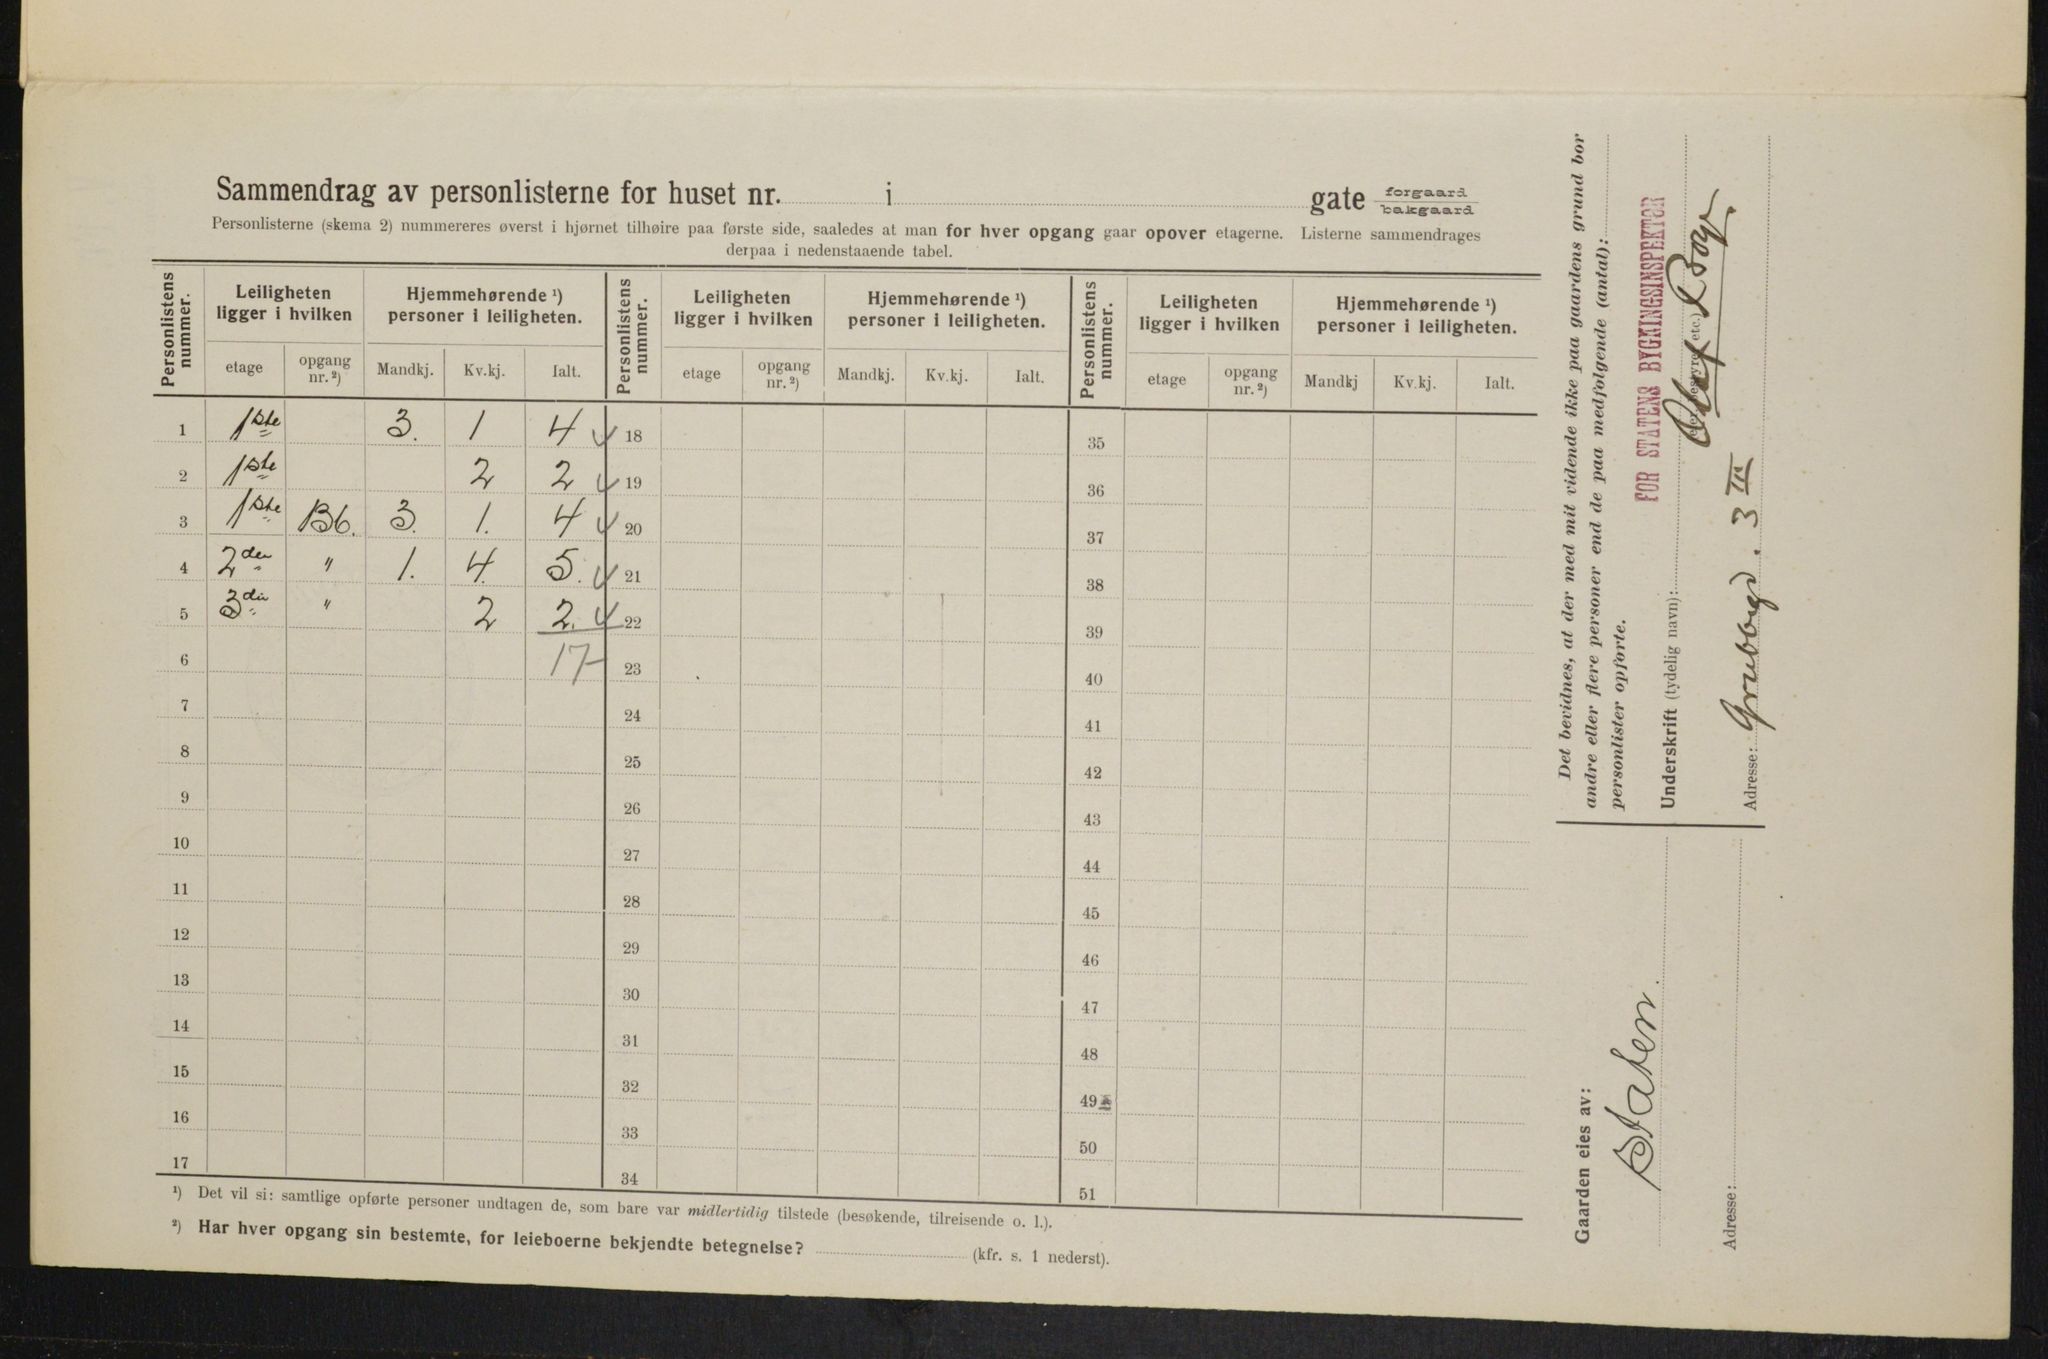 Sammendrag av personlisterne for huset nr. i gate forgaard bakgaard
Personlisterne (skema 2) nummereres øverst i hjørnet tilhøire paa første side, saaledes at man for hver opgang gaar opover etagerne. Listerne sammendrages
derpaa i nedenstaaende tabel.
Personlistens nummer. Leiligheten ligger i hvilken Hjemmehørende ¹) personer i leiligheten. Personlistens nummer. Leiligheten ligger i hvilken Hjemmehørende ¹) personer i leiligheten. Personlistens nummer. Leiligheten ligger i hvilken Hjemmehørende ¹) personer i leiligheten.
etage opgang nr. ²) Mandkj. Kv.kj. Ialt. etage opgang nr. ²) Mandkj. Kv.kj. Ialt. etage opgang nr. ²) Mandkj Kv.kj. Ialt.
1 1ste 3. 1 4 18 35
2 1ste 2 2 19 36
3 1ste B6. 3. 1. 4 20 37
4 2den " 1. 4. 5. 21 38
5 3die " 2 2. 22 39
6 17 23 40
7 24 41
8 25 42
9 26 43
10 27 44
11 28 45
12 29 46
13 30 47
14 31 48
15 32 49
16 33 50
17 34 51
¹) Det vil si: samtlige opførte personer undtagen de, som bare var midlertidig tilstede (besøkende, tilreisende o. l.).
²) Har hver opgang sin bestemte, for leieboerne bekjendte betegnelse? (kfr. s. 1 nederst).
Det bevidnes, at der med mit vidende ikke paa gaardens grund bor
andre eller flere personer end de paa medfølgende (antal):
personlister opførte.
FOR STATENS BYGNINGSINSPEKTØR
Underskrift (tydelig navn): Olaf
(eier, bestyrer etc.)
Adresse: Grubbegd. 3 III
Gaarden eies av:
Staten.
Adresse: